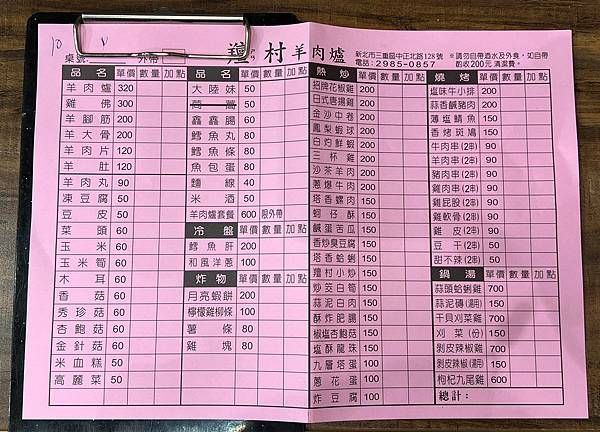 10 V
羶村羊肉爐
新北市三重區中正北路128號
電話：2985-0857
＊請勿自帶酒水及外食，如自帶
酌收200元 清潔費。
桌號: 外帶
品名 單價 數量 加點
羊肉爐 320
雞佛 300
羊腳筋 200
羊大骨 200
羊肉片 120
羊肚 120
羊肉丸 90
凍豆腐 50
豆皮 50
菜頭 60
玉米 60
玉米筍 60
木耳 60
香菇 60
秀珍菇 60
杏鮑菇 60
金針菇 60
米血糕 50
高麗菜 50
品名 單價 數量 加點
大陸妹 50
茼蒿 50
鑫鑫腸 60
鱈魚丸 80
鱈魚條 80
魚包蛋 80
麵線 40
米酒 50
羊肉爐套餐 600 限外帶
冷盤 單價 數量 加點
鱈魚肝 200
和風洋蔥 100
炸物 單價 數量 加點
月亮蝦餅 200
檸檬雞柳條 100
薯條 80
雞塊 80
熱炒 單價 數量 加點
招牌花椒雞 200
日式唐揚雞 200
金沙中卷 200
鳳梨蝦球 200
白灼鮮蝦 200
三杯雞 200
沙茶羊肉 200
蔥爆牛肉 200
塔香螺肉 150
蚵仔酥 150
鹹蛋苦瓜 150
香炒臭豆腐 150
塔香蛤蜊 150
羶村小炒 150
炒筊白筍 150
蒜泥白肉 150
酥炸肥腸 150
椒塩杏鮑菇 150
塩酥龍珠 150
九層塔蛋 100
蔥花蛋 100
炸豆腐 100
燒烤 單價 數量 加點
塩味牛小排 200
蒜香鹹豬肉 200
薄塩鯖魚 150
香烤斑鳩 150
牛肉串(2串) 90
羊肉串(2串) 90
豬肉串(2串) 90
雞肉串(2串) 90
雞屁股(2串) 90
雞軟骨(2串) 90
雞皮(2串) 50
豆干(2串) 50
甜不辣(2串) 50
鍋湯 單價 數量 加點
蒜頭蛤蜊雞 700
蒜泥磚(湯用) 150
干貝刈菜雞 700
刈菜(份) 150
剝皮辣椒雞 700
剝皮辣椒(湯用) 150
枸杞九尾雞 600
總計：